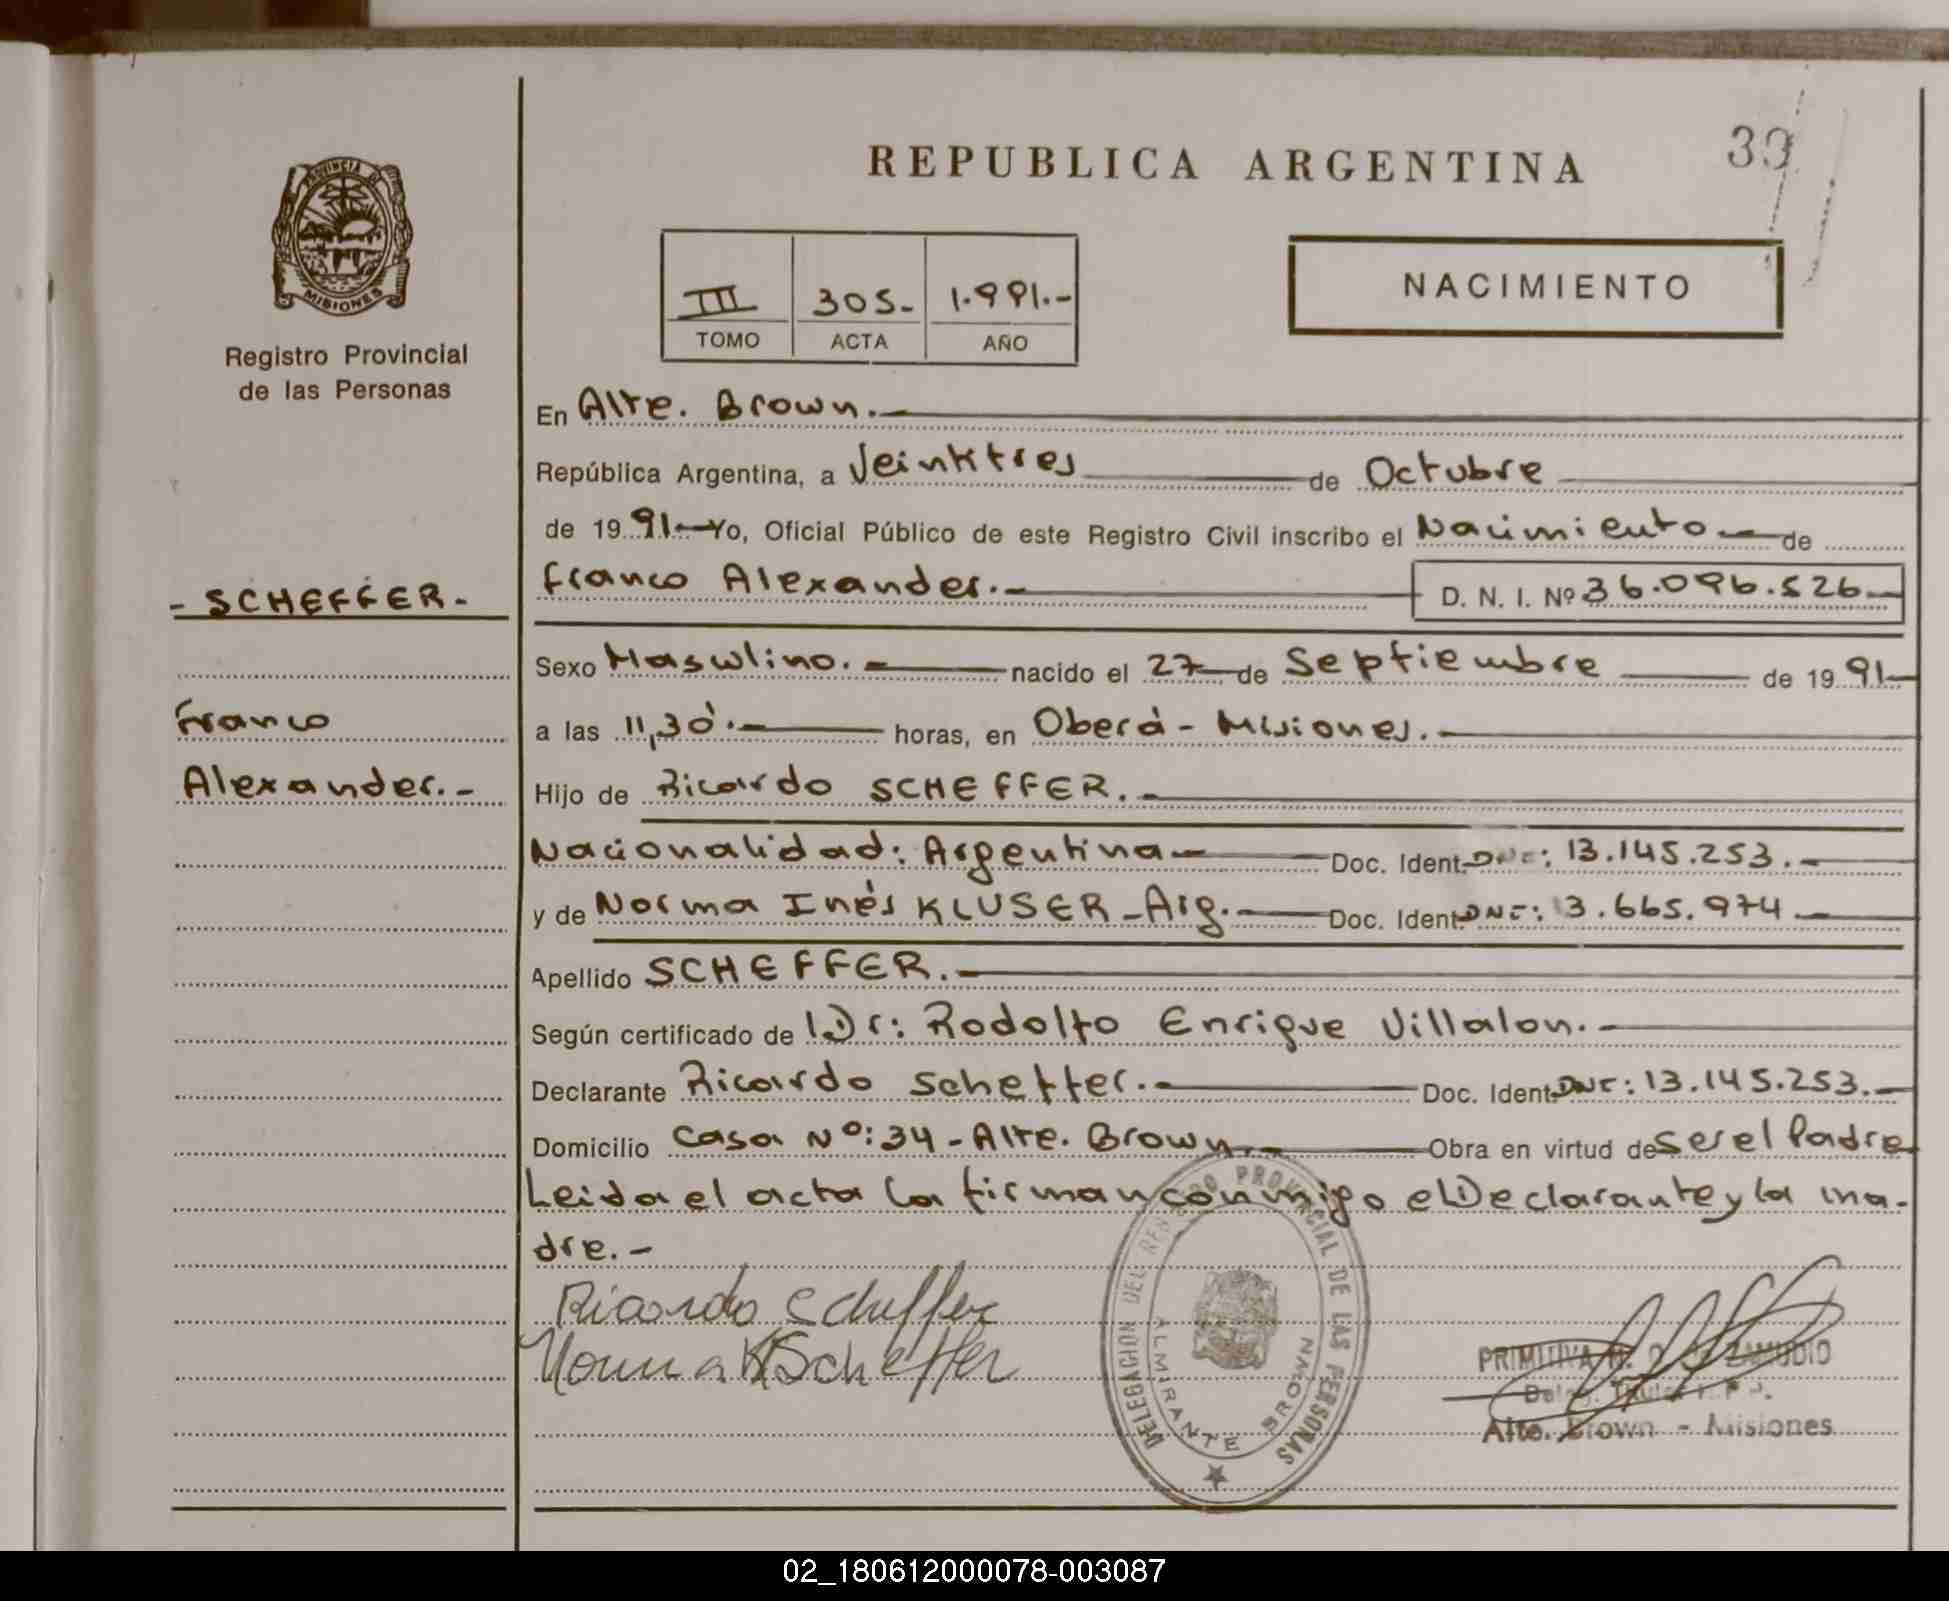 REPUBLICA ARGENTINA
PROVINCIA DE
MISIONES
Registro Provincial
de las Personas
NACIMIENTO
III 305- 1.991.-
TOMO ACTA AÑO
En Alte. Brown.-
República Argentina, a Veintitres de Octubre
de 1991- Yo, Oficial Público de este Registro Civil inscribo el Nacimiento de
- SCHEFFER -
Franco Alexander.- D. N. I. Nº 36.096.526-
Sexo Masculino.- nacido el 27 de Septiembre de 1991-
Franco
a las 11,30.- horas, en Oberá - Misiones.-
Alexander.-
Hijo de Ricardo SCHEFFER.-
Nacionalidad: Argentina- Doc. Ident. DNI: 13.145.253.-
y de Norma Inés KLUSER-Arg.- Doc. Ident. DNI: 13.665.974.-
Apellido SCHEFFER.-
Según certificado de Dr: Rodolfo Enrique Villalon.-
Declarante Ricardo Scheffer.- Doc. Ident. DNI: 13.145.253.-
Domicilio Casa Nº: 34 - Alte. Brown.- Obra en virtud de Ser el Padre
Leida el acta la firman conmigo el Declarante y la ma-
dre.-
Ricardo Scheffer
Norma K Scheffer
DELEGACION DEL PROVINCIAL DE LAS PERSONAS
ALMIRANTE BROWN
PRIMITIVA ZAMUDIO
Titular
Alte. Brown - Misiones
02_180612000078-003087